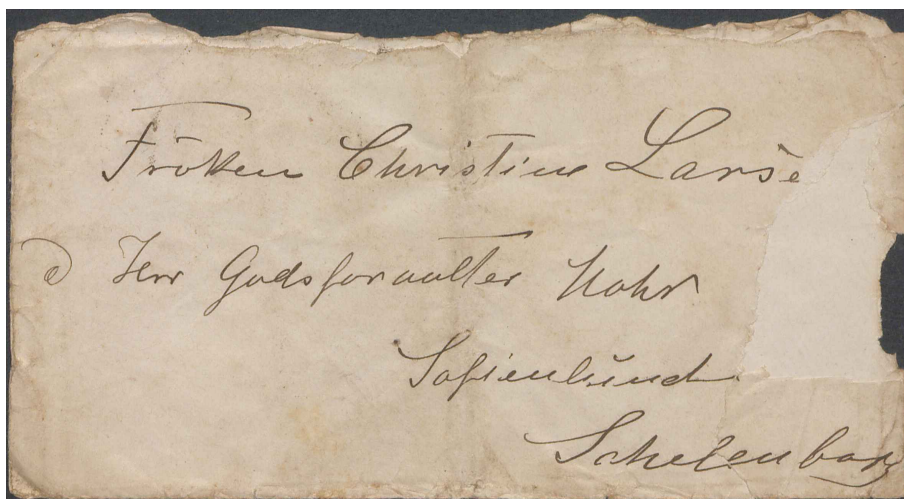 Fröken Christine Larse
a Herr Godsforvalter Mohr
Sofienlund
Schelenborg